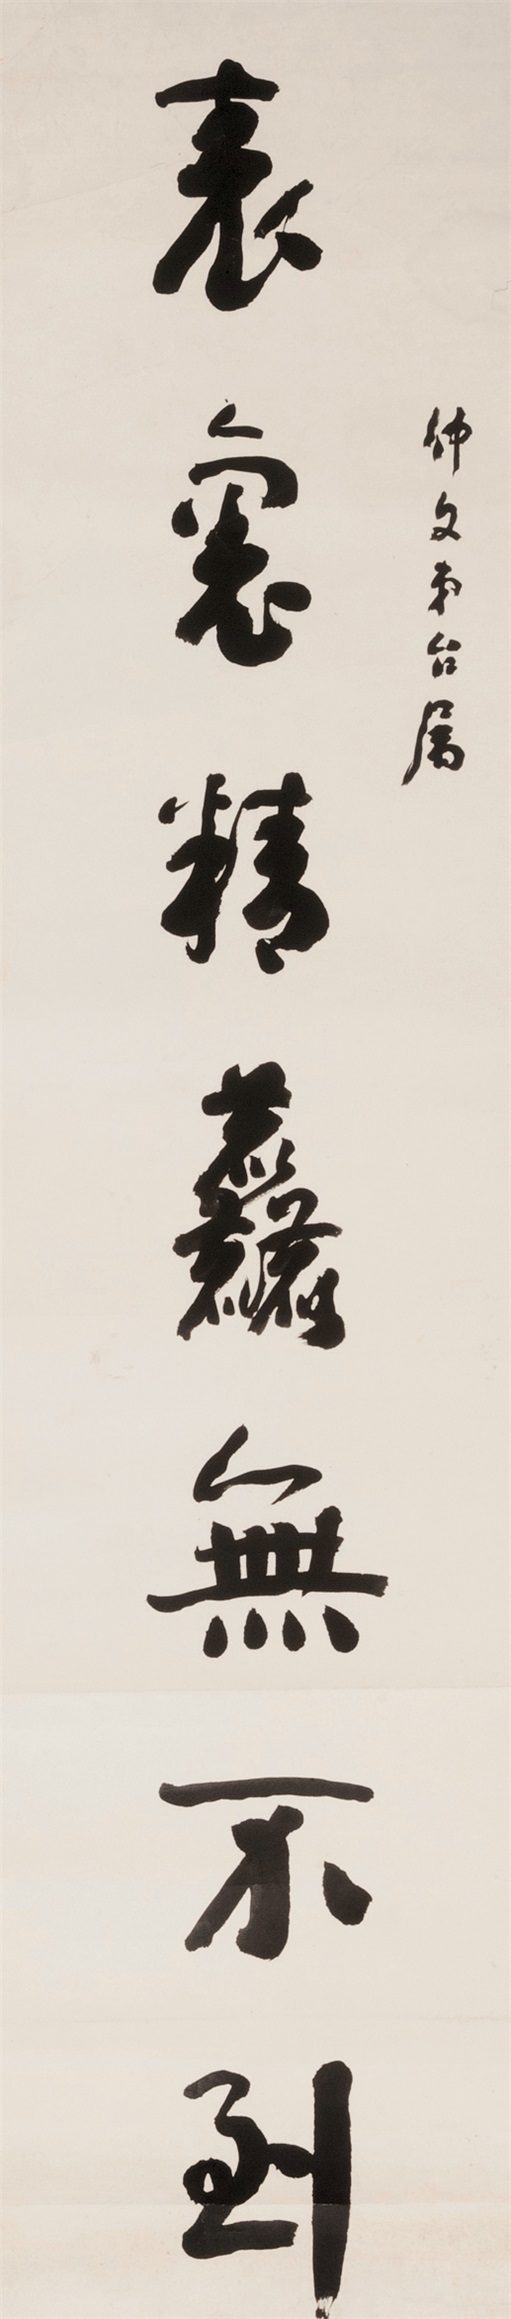 仲文弟台属
表裏精麤無不到